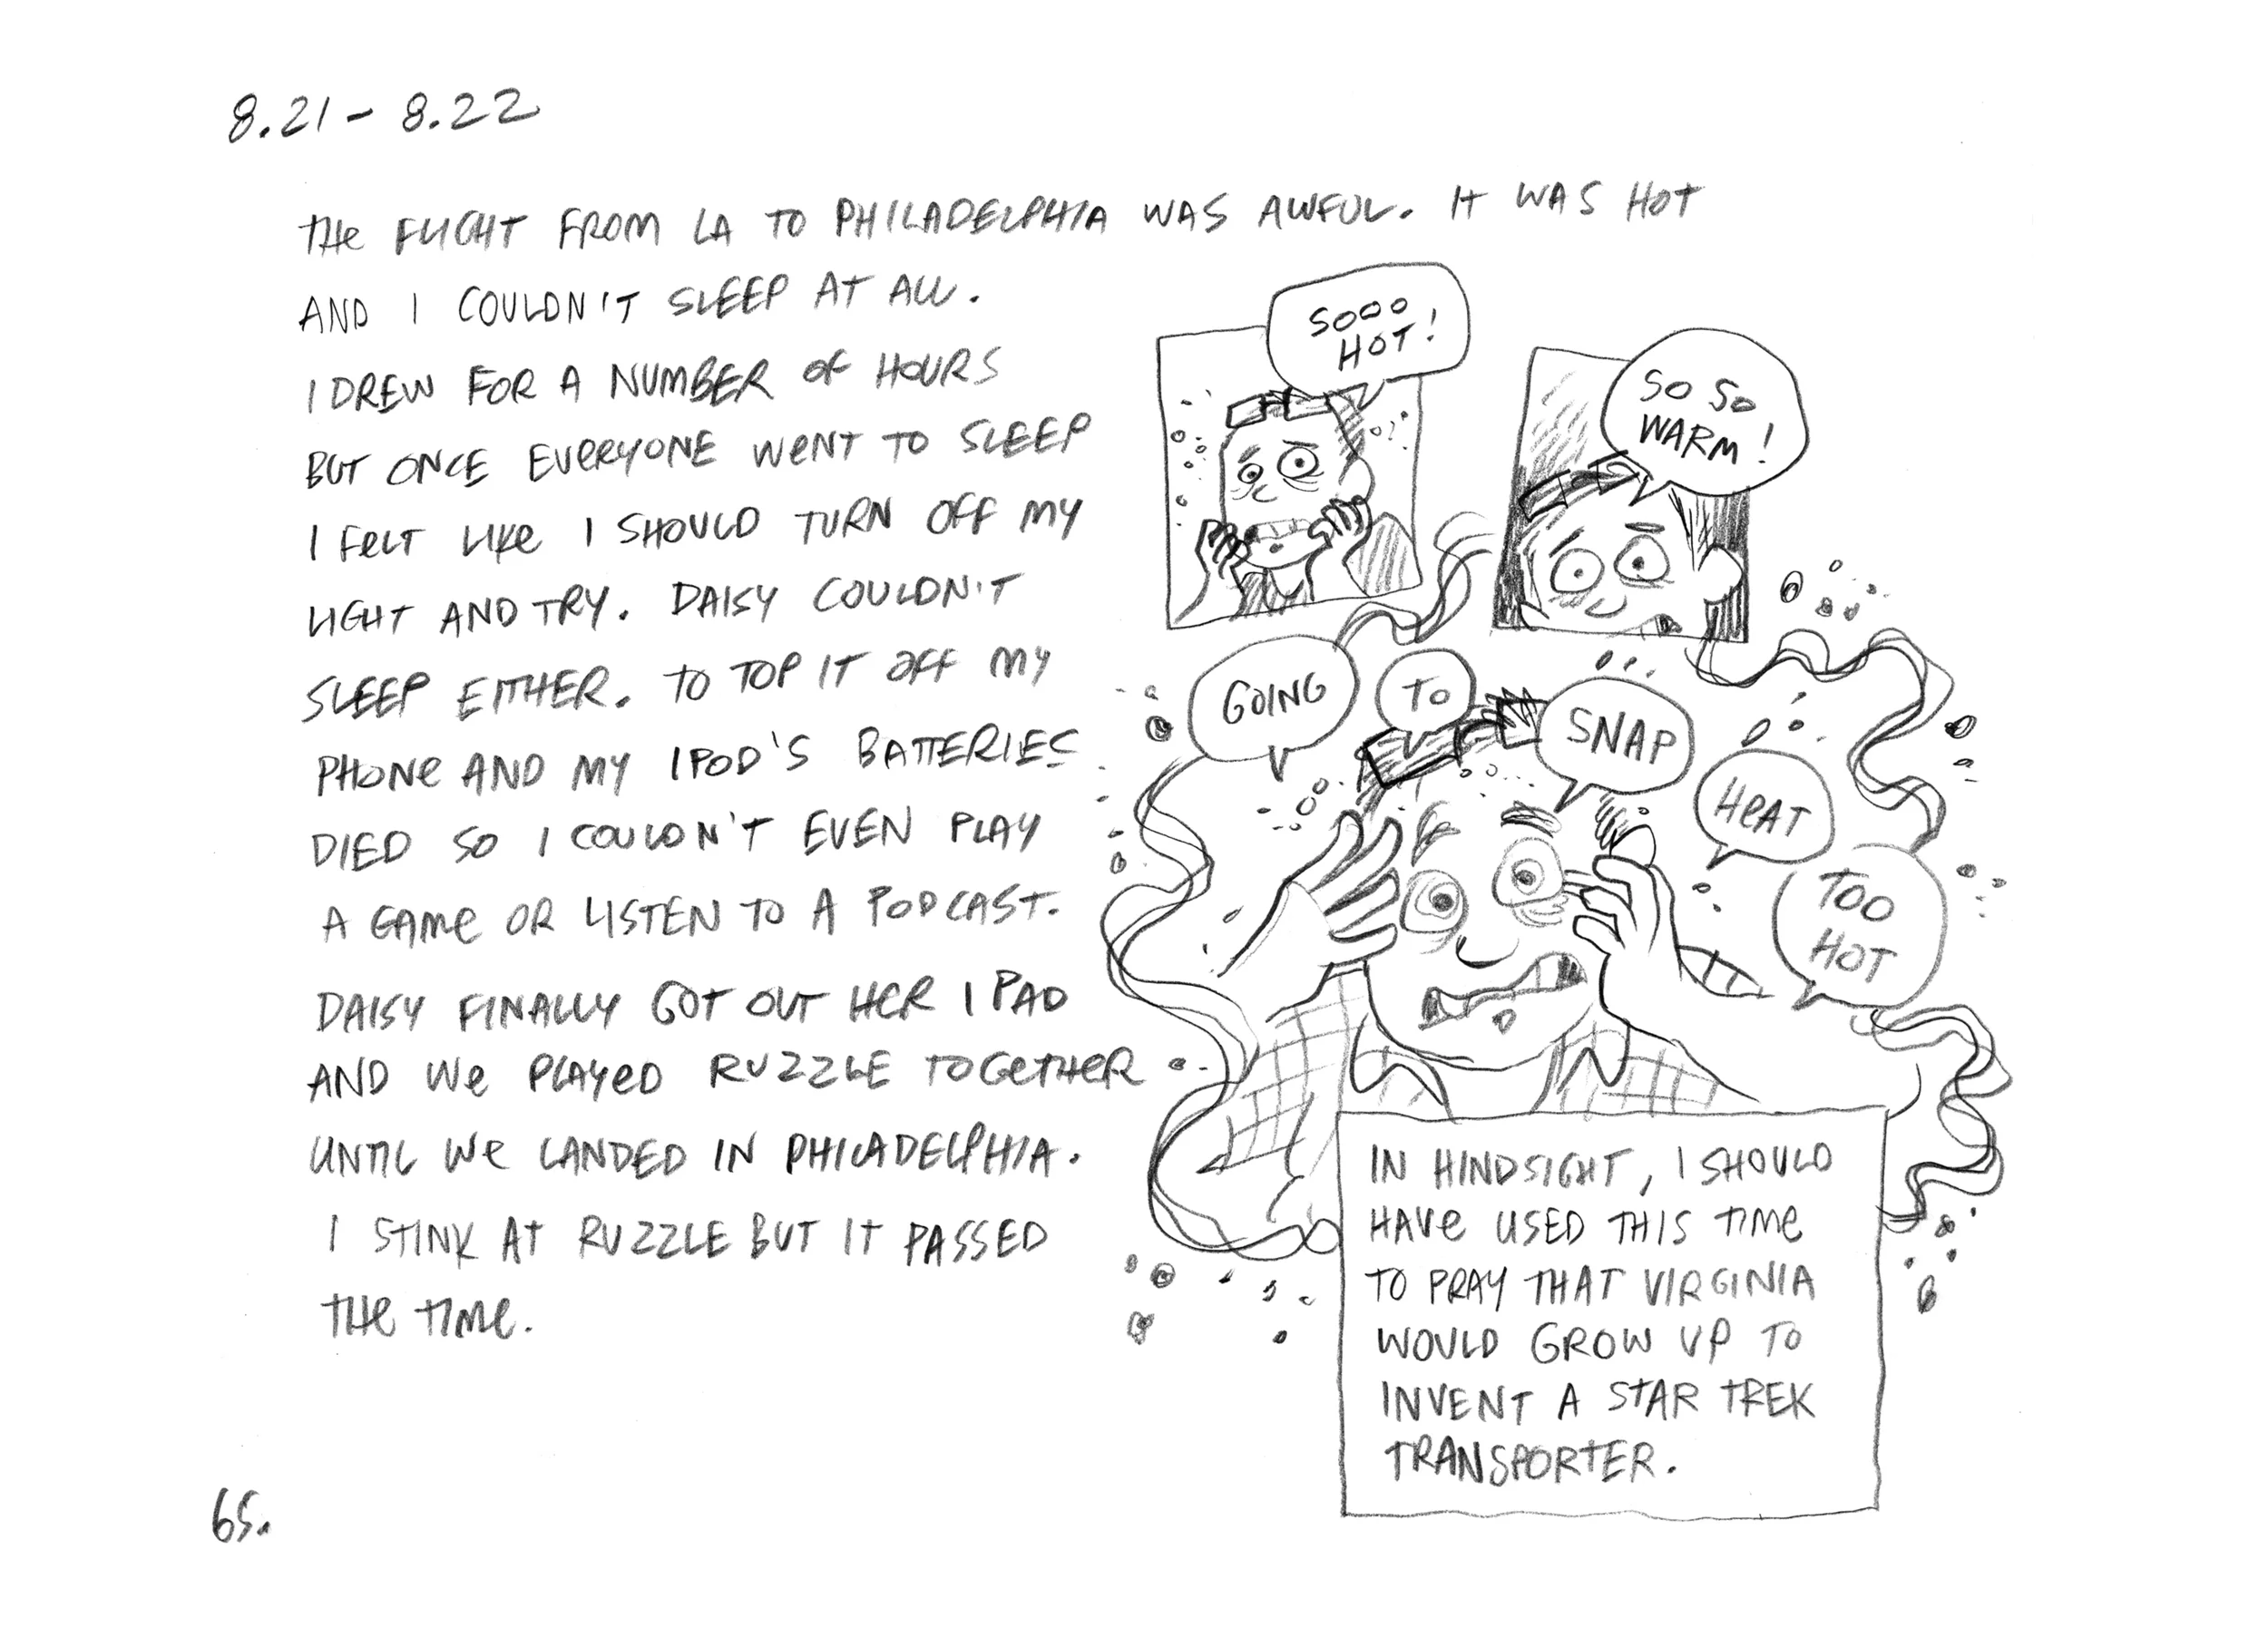 8.21 - 8.22
THE FLIGHT FROM LA TO PHILADELPHIA WAS AWFUL. IT WAS HOT
AND I COULDN'T SLEEP AT ALL.
I DREW FOR A NUMBER OF HOURS
BUT ONCE EVERYONE WENT TO SLEEP
I FELT LIKE I SHOULD TURN OFF MY
LIGHT AND TRY. DAISY COULDN'T
SLEEP EITHER. TO TOP IT OFF MY
PHONE AND MY IPOD'S BATTERIES
DIED SO I COULDN'T EVEN PLAY
A GAME OR LISTEN TO A PODCAST.
DAISY FINALLY GOT OUT HER IPAD
AND WE PLAYED RUZZLE TOGETHER
UNTIL WE LANDED IN PHILADELPHIA.
I STINK AT RUZZLE BUT IT PASSED
THE TIME.
SOOO
HOT!
SO SO
WARM!
GOING
TO
SNAP
HEAT
TOO
HOT
IN HINDSIGHT, I SHOULD
HAVE USED THIS TIME
TO PRAY THAT VIRGINIA
WOULD GROW UP TO
INVENT A STAR TREK
TRANSPORTER.
65.